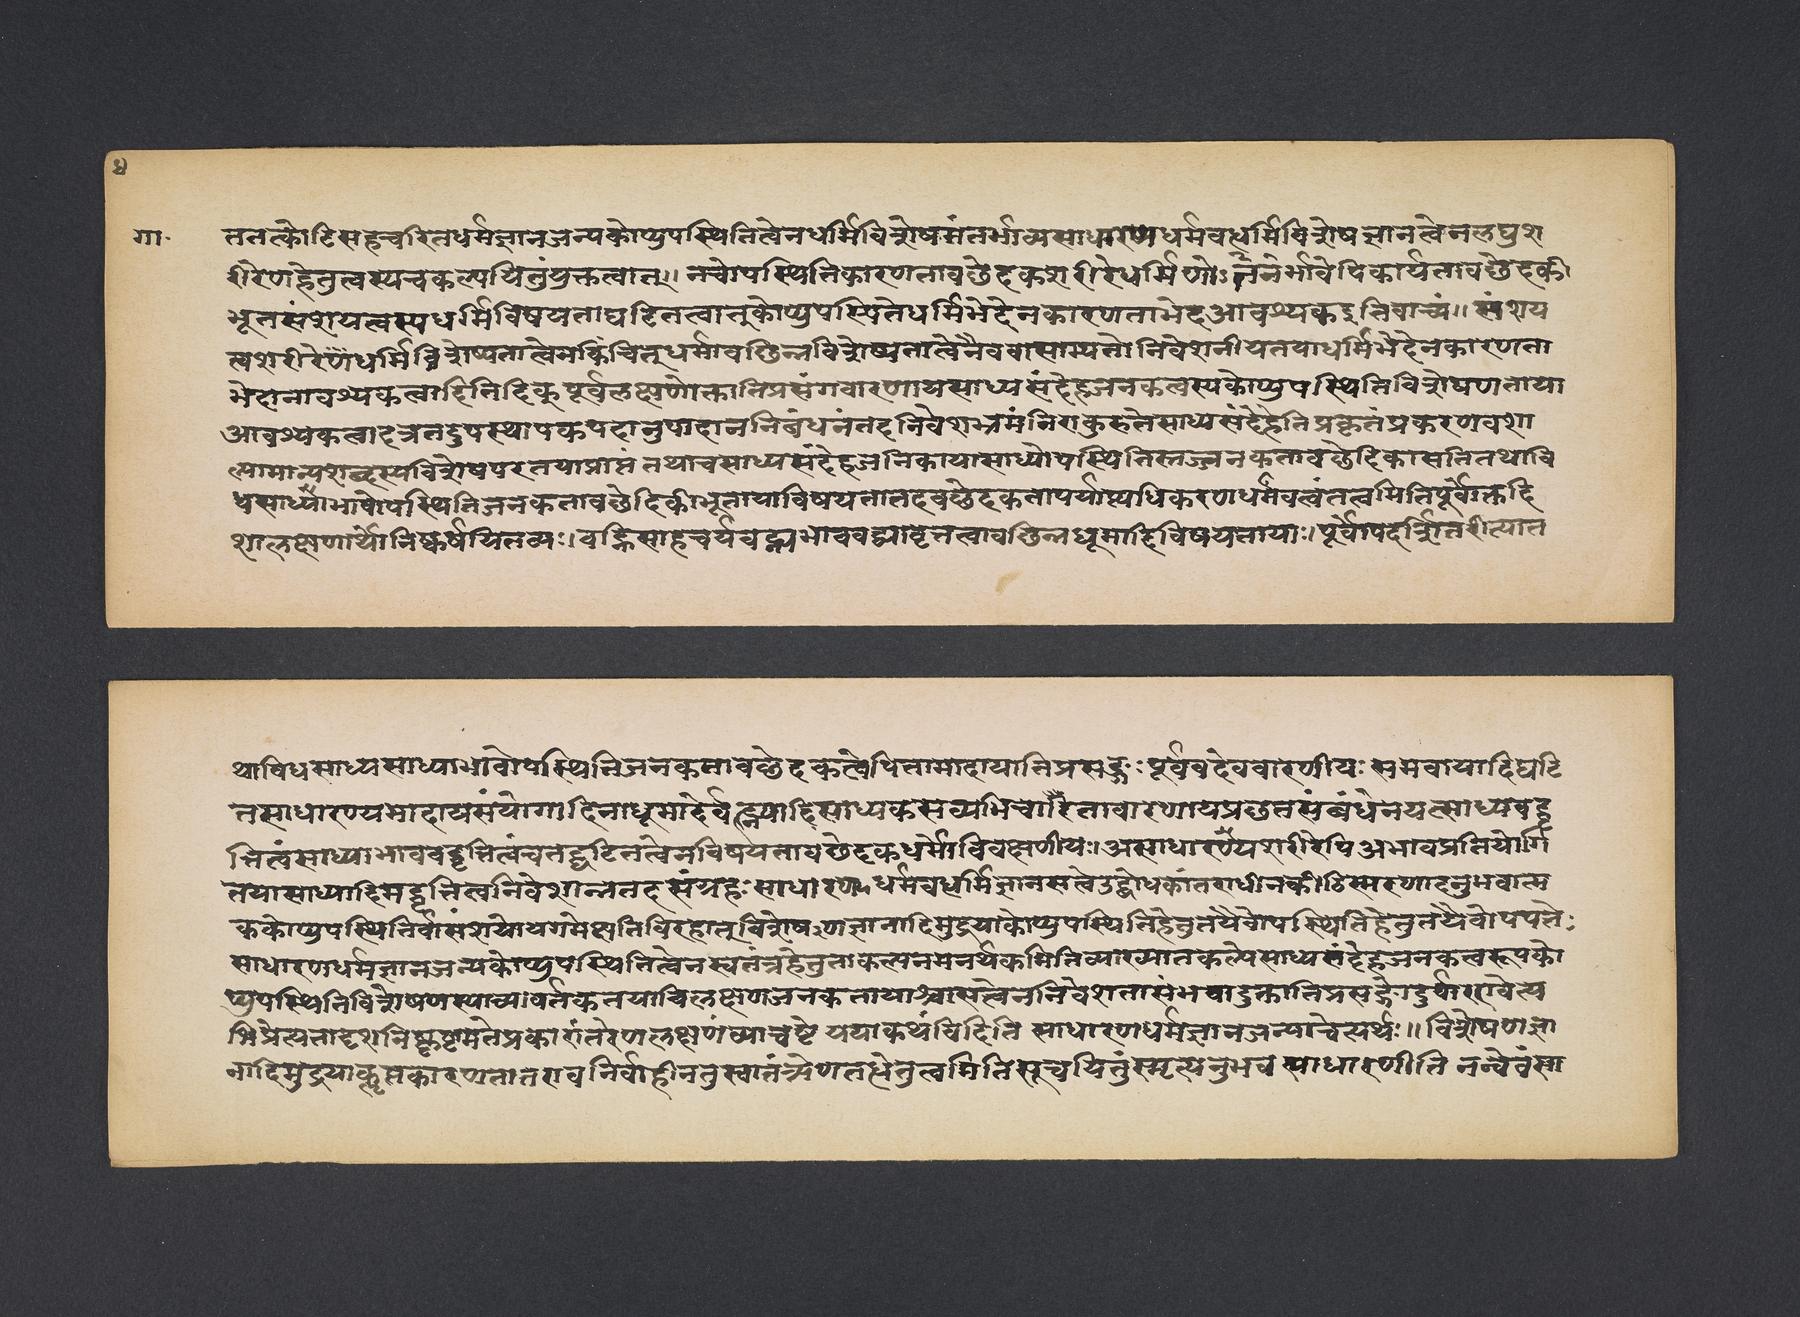 ४
गा॰ ततत्कोटिसहचरितधर्मज्ञानजन्यकोट्युपस्थितित्वेनधर्मिविशेषमंतर्भाव्यसाधारणधर्मवधर्मिविशेषज्ञानत्वेनलघुश
रीरेणहेतुत्वस्यचकल्पयितुंयुक्तत्वात्।। नचोपस्थितिकारणतावछेदकशरीरेधर्मिणोऽनंतर्भावेपिकार्यतावछेदकी
भूतसंशयत्वस्यधर्मिविषयताघटितत्वात्कोट्युपस्थितेधर्मिभेदेनकारणताभेदआवश्यकइतिवाच्यं।। संशय
त्वशरीरेणधर्मिविशेष्यतात्वेनकिंचित्धर्मावछिन्नविशेष्यतात्वेनैववासाम्यतोनिवेशनीयतयाधर्मिभेदेनकारणता
भेदानावश्यकत्वादितिदिक् पूर्वलक्षणोक्तातिप्रसंगवारणायसाध्यसंदेहजनकत्वस्यकोट्युपस्थितिविशेषणताया
आवश्यकत्वादत्रतदुपस्थापकपदानुपादाननिबंधनंतदनिवेशभ्रमंनिराकुरुतेसाध्यसंदेहेतिप्रकृतंप्रकरणवशा
त्सामान्यशब्दस्यविशेषपरतयाप्राप्तं तथाचसाध्यसंदेहजनिकायासाध्योपस्थितिस्तज्जनकतावछेदिकासतितथावि
धसाध्याभावोपस्थितिजनकतावछेदिकीभूतायाविषयतातदवछेदकतापर्याप्त्यधिकरणधर्मवत्वंतत्वमितिपूर्वोक्तदि
शालक्षणार्थोनिष्कर्षयितव्यः।। वह्निसाहचर्यवह्न्यभाववद्व्यावृत्तत्वावछिन्नधूमादिविषयतायाः।पूर्वोपदर्शितरीत्यात
थाविधसाध्यसाध्याभावोपस्थितिजनकतावछेदकत्वेपितामादायातिप्रसङ्गः पूर्ववदेववारणीयः समवायादिघटि
तसाधारण्यमादायसंयोगादिनाधूमादेर्वह्न्यादिसाध्यकसव्यभिचारितावारणायप्रछतसंबंधेनयत्साध्यवद्वृ
त्तित्वंसाध्याभाववद्वृत्तित्वंचतद्घटितत्वेनविषयतावछेदकधर्मोविवक्षणीयः।असाधारण्यशरीरेपिअभावप्रतियोगि
तयासाध्यादिमद्वृत्तित्वनिवेशान्नतदसंग्रहः साधारणधर्मवधर्मिज्ञानसत्वेउद्बोधकांतराधीनकोटिस्मरणादनुभवात्म
ककोट्युपस्थितिर्वासंशयोयगमेक्षतिविरहात्विशेषणज्ञानादिमुद्रयाकोट्युपस्थितिहेतुतयैवोपस्थितिहेतुतयैवोपपत्तेः
साधारणधर्मज्ञानजन्यकोट्युपस्थितित्वेनस्वतंत्रहेतुताकल्पनमनर्थकमितिव्याख्यातकल्पेसाध्यसंदेहजनकत्वरूपको
ट्युपस्थितिविशेषणस्याव्यावर्तकतयाविलक्षणजनकतायाश्चासत्वेननिवेशनासंभवादुक्तातिप्रसङ्गोदुर्वारएवेत्य
भिप्रेत्यतादृशनिष्कृष्टमेतप्रकारांतरेणलक्षणंव्याचष्टे यथाकथंचिदिति साधारणधर्मज्ञानजन्याचेत्यर्थः।। विशेषणज्ञा
नादिमुद्रयाकॢप्तकारणतातएवनिर्वाहीनतुस्वातंत्र्येणतधेतुत्वमितिसूचयितुंस्मृत्यनुभव साधारणीति नन्वेवंसा